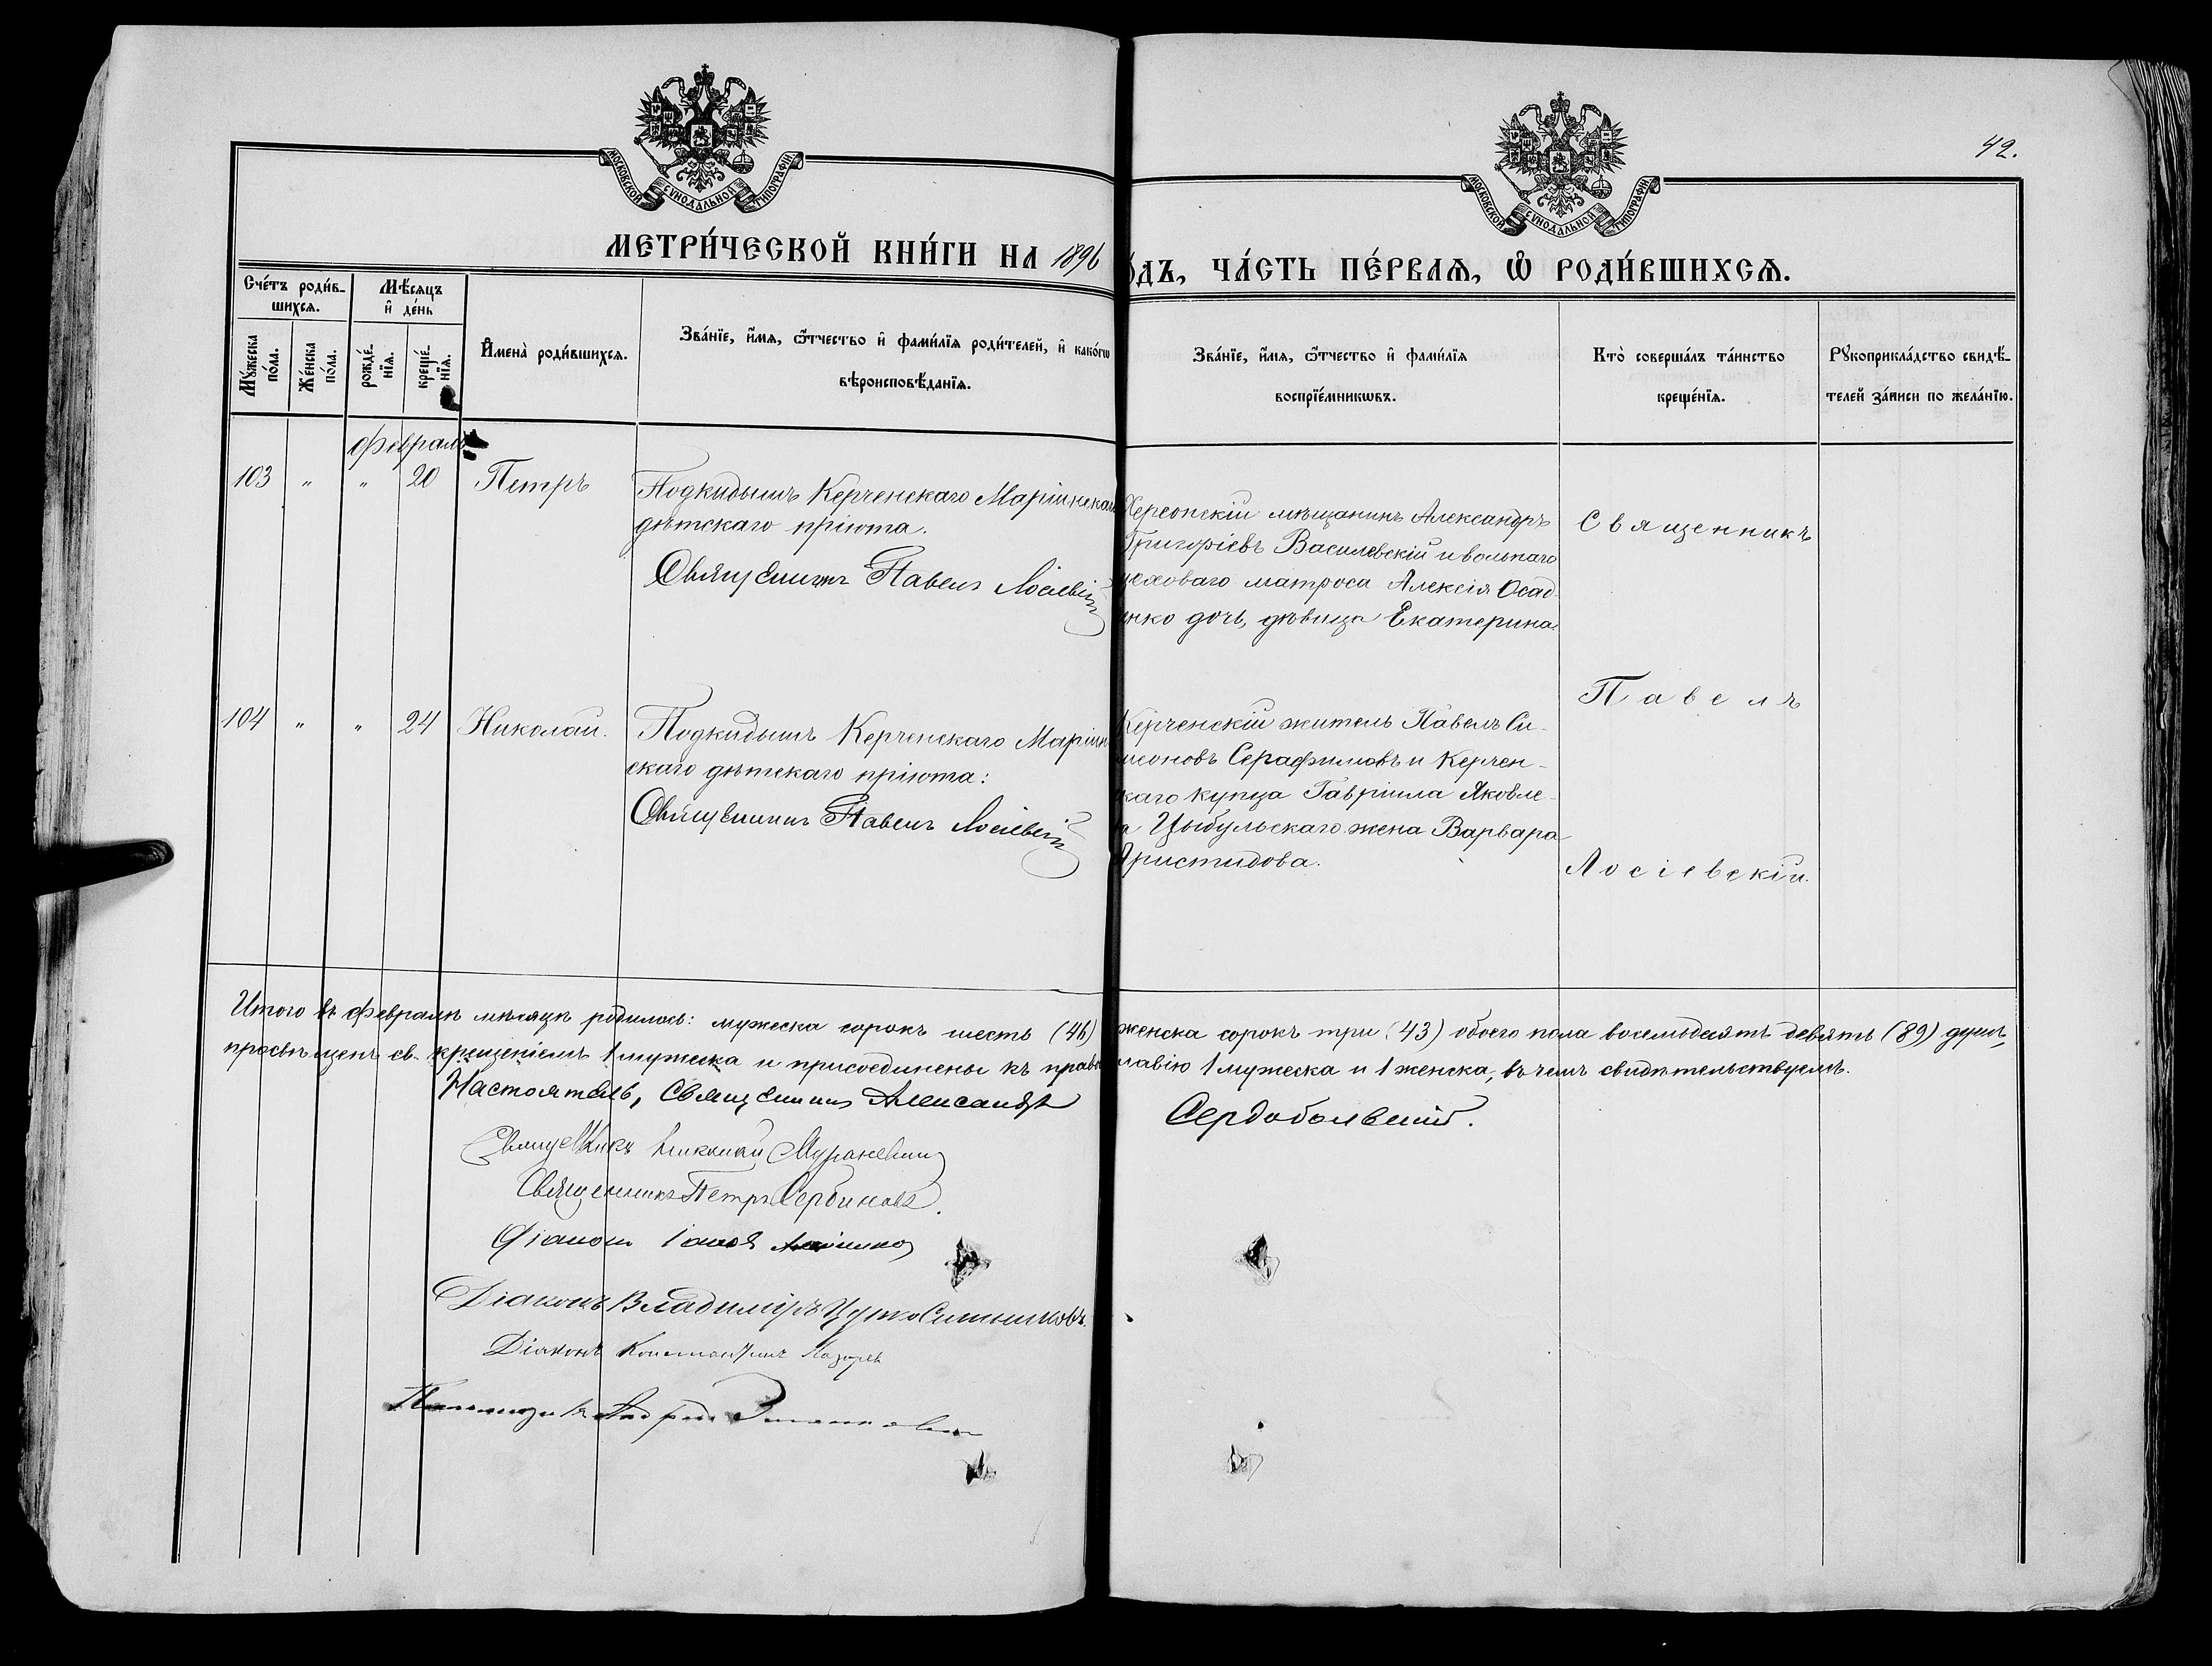 МОСКОВСКОЙ СѴНОДАЛЬНОЙ ТИПОГРАФІИ
МОСКОВСКОЙ СѴНОДАЛЬНОЙ ТИПОГРАФІИ
42.
МЕТРИ́ЧЕСКОЙ КНИ́ГИ НА 1896
О́ДЪ, ЧА́СТЬ ПЕ́РВАѦ, Ѡ҆ РОДИ́ВШИХСѦ.
Сче́тъ роди́в-
шихсѧ.
Мꙋ́жеска
по́ла.
Же́нска
по́ла.
Мѣ́сѧцъ
и҆ де́нь
рожде́-
нїѧ.
креще́-
нїѧ.
И҆мена̀ роди́вшихсѧ.
Зва́нїе, и҆́мѧ, ѻ҆́тчество и҆ фами́лїѧ роди́телей, и҆ како́гѡ
вѣроисповѣ́данїѧ.
Зва́нїе, и҆́мѧ, ѻ҆́тчество и҆ фами́лїѧ
воспрїе́мникѡвъ.
Кто̀ соверша́лъ та́инство
креще́нїѧ.
Рꙋкоприкла́дство свидѣ́-
телей за́писи по жела́нїю.
Февраль
103 " " 20 Петръ
Подкидышъ Керченскаго Маріинскаго
дѣтскаго пріюта.
Священникъ Павелъ Лосіевскій
Херсонскій мѣщанинъ Александръ
Григоріевъ Василевскій и вольнаго
цеховаго матроса Алексія Осад-
енко дочь, дѣвица Екатерина.
Священникъ
Павелъ
Лосіевскій.
104 " " 24 Николай.
Подкидышъ Керченскаго Маріин-
скаго дѣтскаго пріюта:
Священникъ Павелъ Лосіевскій
Керченскій житель Павелъ Си-
меоновъ Серафимовъ и Керчен-
скаго купца Гавріила Яковле-
ва Цыбульскаго жена Варвара
Аристидова.
Итого въ Февралѣ мѣсяцѣ родилось: мужеска сорокъ шесть (46) женска сорокъ три (43) обоего пола восемьдесятъ девять (89) душъ,
просвѣщенъ св. крещеніемъ 1 мужеска и присоединены къ православію 1 мужеска и 1 женска, въ чемъ свидѣтельствуемъ.
Настоятель, Священникъ Александръ Сердобольскій.
Священникъ Николай
Священникъ Петръ Сербиновъ.
Діаконъ Іаковъ
Діаконъ Владиміръ
Діаконъ Константинъ Лазаревъ
Псаломщикъ Андрей